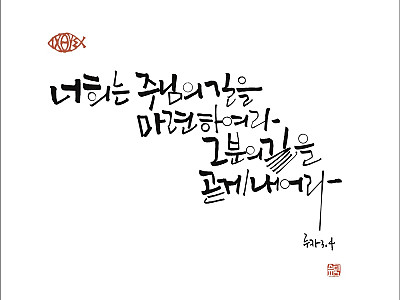 ΙΧΘΥΣ
너희는 주님의 길을
마련하여라
그분의 길을
곧게 내어라
루카 3.4